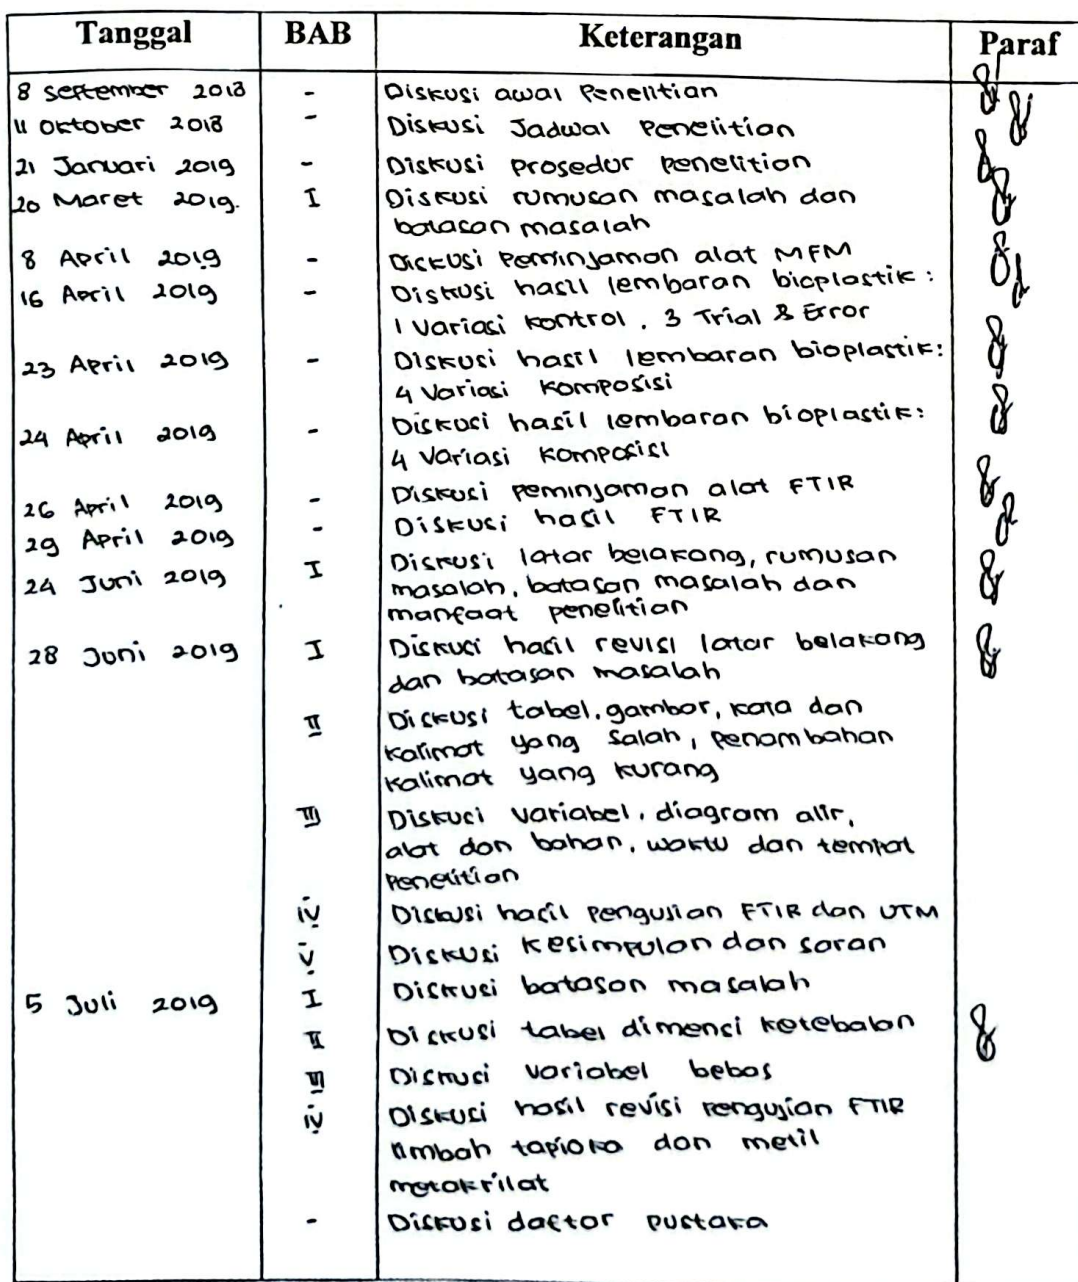 Tanggal BAB Keterangan Paraf
8 September 2018 - Diskusi awal Penelitian
11 Oktober 2018 - Diskusi Jadwal Penelitian
21 Januari 2019 - Diskusi prosedur penelitian
20 Maret 2019. I Diskusi rumusan masalah dan
batasan masalah
8 April 2019 - Diskusi Peminjaman alat MFM
16 April 2019 - Diskusi hasil lembaran bioplastik :
1 Variasi kontrol, 3 Trial & Error
23 April 2019 - Diskusi hasil lembaran bioplastik:
4 Variasi Komposisi
24 April 2019 - Diskusi hasil lembaran bioplastik:
4 Variasi Komposisi
26 April 2019 - Diskusi peminjaman alat FTIR
29 April 2019 - Diskusi hasil FTIR
24 Juni 2019 I Diskusi latar belakang, rumusan
masalah, batasan masalah dan
manfaat penelitian
28 Juni 2019 I Diskusi hasil revisi latar belakang
dan batasan masalah
II Diskusi tabel, gambar, kata dan
kalimat yang salah, penambahan
kalimat yang kurang
III Diskusi variabel, diagram alir,
alat dan bahan, waktu dan tempat
Penelitian
IV Diskusi hasil pengusian FTIR dan UTM
V Diskusi kesimpulan dan saran
5 Juli 2019 I Diskusi batasan masalah
II Diskusi tabel dimensi ketebalan
III Diskusi variabel bebas
IV Diskusi hasil revisi pengujian FTIR
limbah tapioka dan metil
metakrilat
- Diskusi daftar pustaka